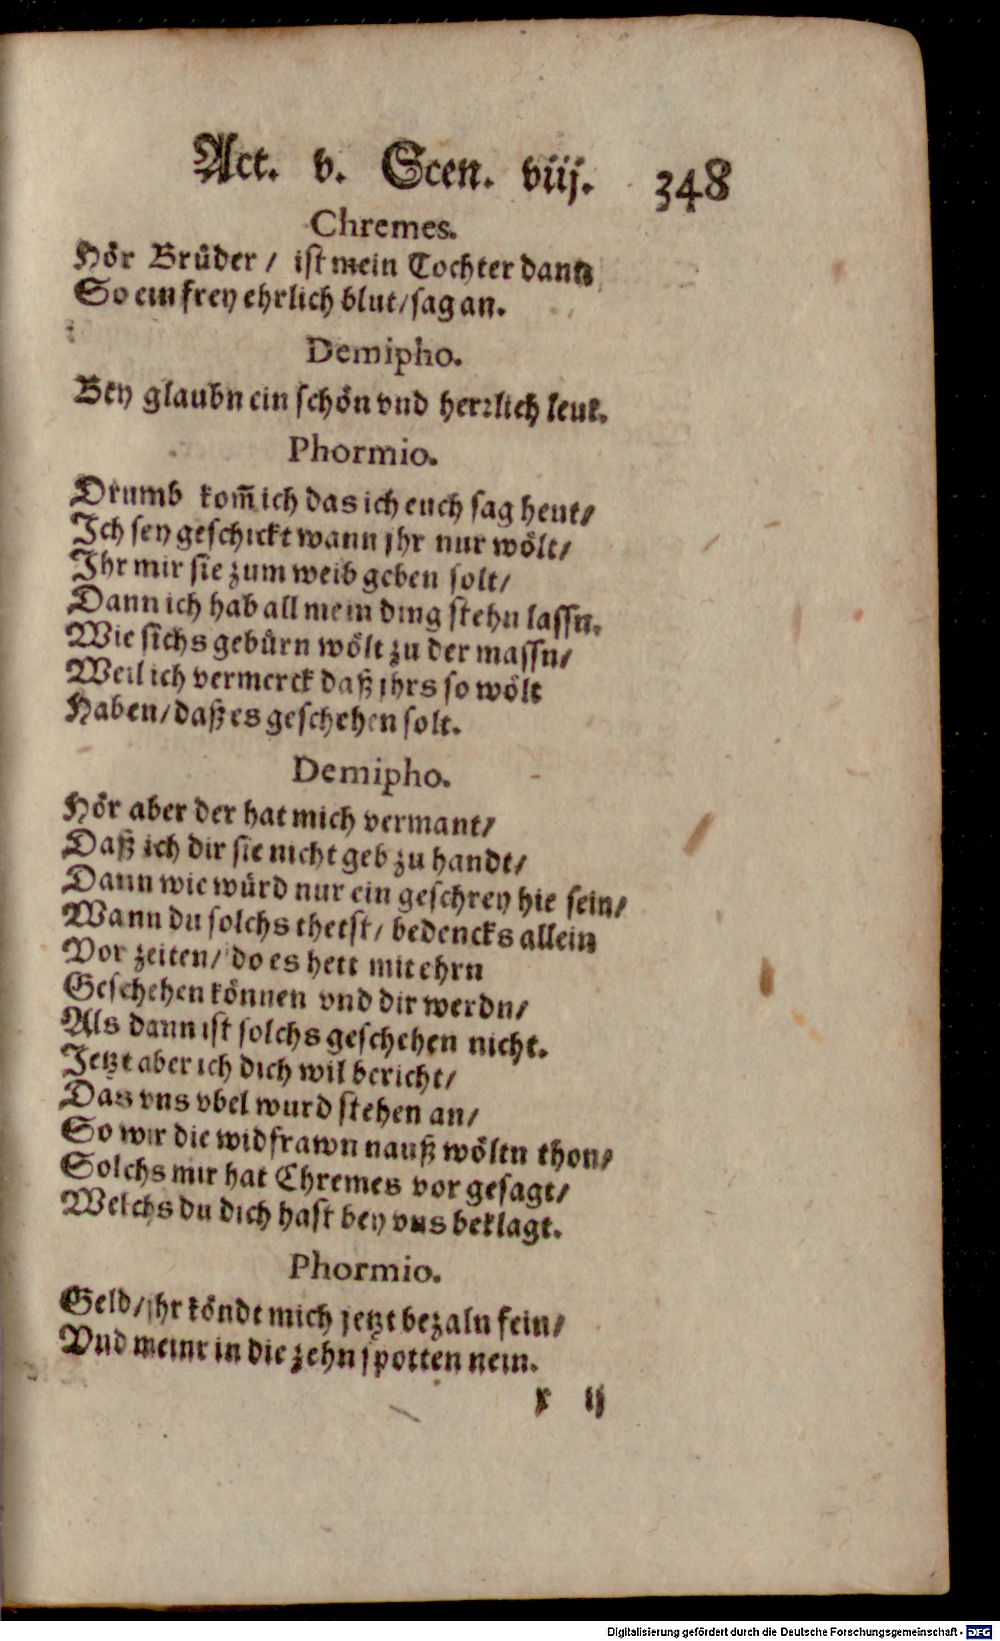 Act. v. Scen. viij. 348
Chremes.
Hör Brůder / ist mein Tochter dann
So ein frey ehrlich blut / sag an.
Demipho.
Bey glaubn ein schön vnd herrlich leut.
Phormio.
Drumb kom̃ ich das ich euch sag heut /
Ich sey geschickt wann jhr nur wölt /
Ihr mir sie zum weib geben solt /
Dann ich hab all mein ding stehn lassn.
Wie sichs gebürn wölt zu der massn /
Weil ich vermerck daß jhrs so wölt
Haben / daß es geschehen solt.
Demipho.
Hör aber der hat mich vermant /
Daß ich dir sie nicht geb zu handt /
Dann wie würd nur ein geschrey hie sein /
Wann du solchs thetst / bedencks allein
Vor zeiten / do es hett mit ehrn
Geschehen können vnd dir werdn /
Als dann ist solchs geschehen nicht.
Jetzt aber ich dich wil bericht /
Das vns vbel wurd stehen an /
So wir die widfrawn nauß wöltn thon /
Solchs mir hat Chremes vor gesagt /
Welchs du dich hast bey vns beklagt.
Phormio.
Geld / jhr köndt mich jetzt bezaln fein /
Vnd meinr in die zehn spotten nein.
x ij
Digitalisierung gefördert durch die Deutsche Forschungsgemeinschaft - DFG